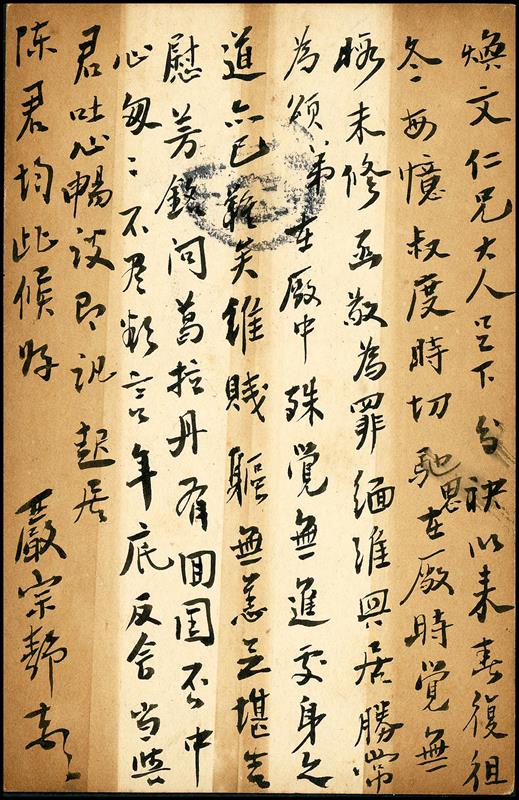 煥文仁兄大人足下分袂以来春復徂
冬每憶叔度時切馳思在廠時覺無
暇未修函敬為罪緬維興居勝常
為頌弟在廠中殊覺無進交身之
道亦已難矣維賤軀無恙足堪告
慰芳銘問葛拉丹有回国否中
心匆匆不尽欲言年底反舍当與
君吐心暢談即訊起居
陈君均此候好
嚴宗